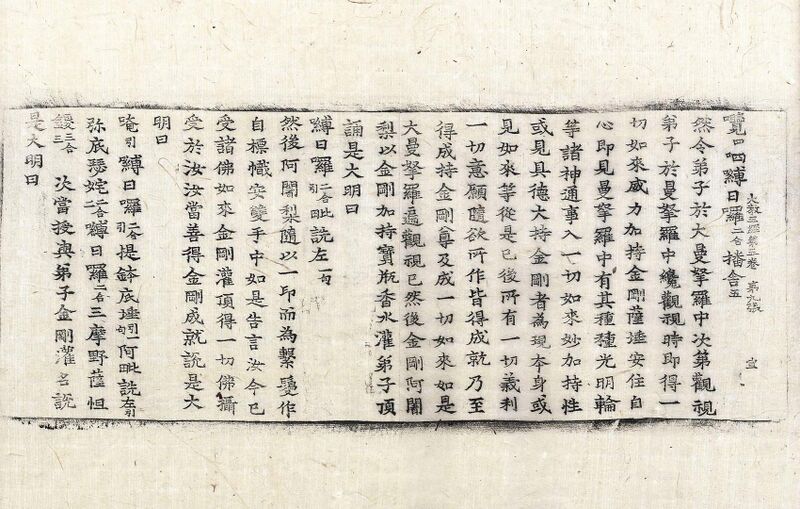 覽四呬嚩日囉二合播舍五
大教王經第五卷 第九張 宣
然令弟子於大曼拏羅中次第觀視
弟子於曼拏羅中纔觀視時即得一
切如來威力加持金剛薩埵安住自
心即見曼拏羅中有其種種光明輪
等諸神通事入一切如來妙加持性
或見具德大持金剛者為現本身或
見如來等從是已後所有一切義利
一切意願隨欲所作皆得成就乃至
得成持金剛尊及成一切如來如是
大曼拏羅遍觀視已然後金剛阿闍
梨以金剛加持寶瓶香水灌弟子頂
誦是大明曰
嚩日囉二合引毗詵左一句
然後阿闍梨隨以一印而為繫鬘作
自標幟安雙手中如是告言汝今已
受諸佛如來金剛灌頂得一切佛攝
受於汝汝當善得金剛成就說是大
明曰
唵引嚩日囉二合引提鉢底埵引一句阿毗詵左引
彌底瑟姹二合二嚩日囉二合三摩野薩怛
鑁三合三 次當授與弟子金剛灌名說
是大明曰